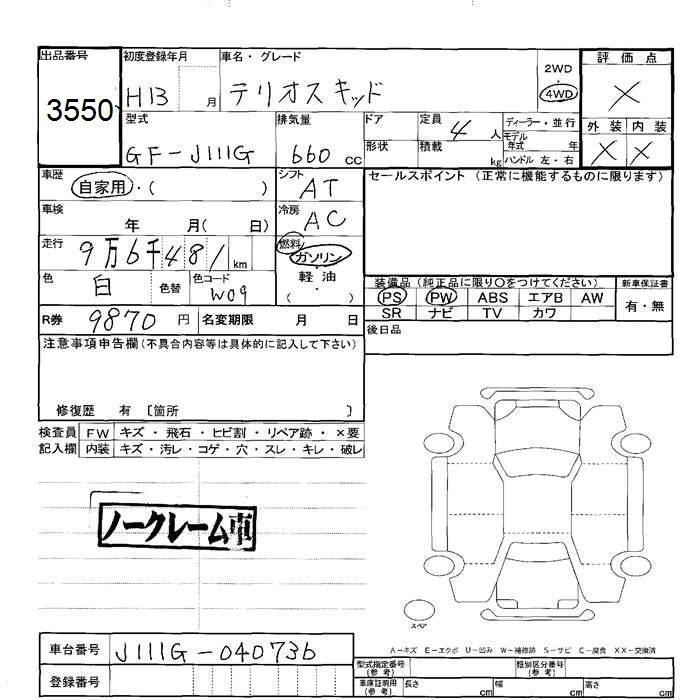 出品番号 初度登録年月 車名・グレード 2WD 評価点
3550 H13 月 テリオスキッド 4WD ×
型式 排気量 ドア 定員 4 人 ディーラー・並行 外装 内装
GF-J111G 660 cc 形状 積載 kg モデル年式 年 ハンドル 左・右 × ×
車歴 自家用・( ) シフト AT セールスポイント (正常に機能するものに限ります)
車検 年 月( 日) 冷房 AC
走行 9万6千481 km 燃料 ガソリン・
色 白 色替 色コード W09 軽油・ ( )
装備品 (純正品に限り○をつけてください) 新車保証書
PS PW ABS エアB AW 有・無
SR ナビ TV カワ
R券 9870 円 名変期限 月 日 後日品
注意事項申告欄(不具合内容等は具体的に記入して下さい)
修復歴 有 〔箇所 〕
検査員 FW キズ・飛石・ヒビ割・リペア跡・×要
記入欄 内装 キズ・汚レ・コゲ・穴・スレ・キレ・破レ
ノークレーム車
スペア
A-キズ E-エクボ U-凹み W-補修跡 S-サビ C-腐食 XX-交換済
車台番号 J111G-040736
登録番号
型式指定番号(参考) 類別区分番号(参考)
車庫証明用(参考) 長さ cm 幅 cm 高さ cm